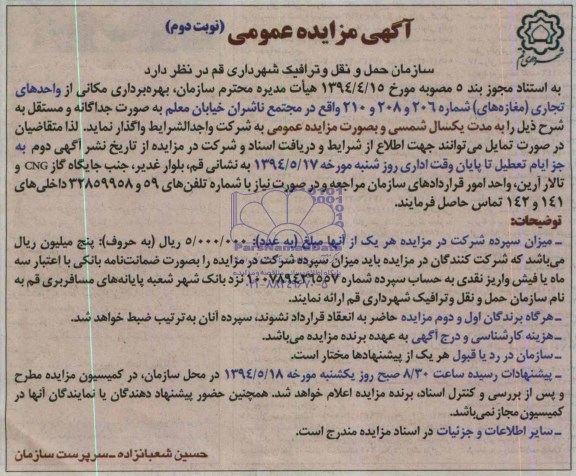 آگهی مزایده عمومی (نوبت دوم)
شهرداری قم
سازمان حمل و نقل وترافیک شهرداری قم در نظر دارد
به استناد مجوز بند ۵ مصوبه مورخ ۱۳۹۴/۴/۱۵ هیأت مدیره محترم سازمان، بهره‌برداری مکانی از واحدهای
تجاری (مغازه‌های) شماره ۲۰۶ و ۲۰۸ و ۲۱۰ واقع در مجتمع ناشران خیابان معلم به صورت جداگانه و مستقل به
شرح ذیل را به مدت یکسال شمسی و بصورت مزایده عمومی به شرکت واجدالشرایط واگذار نماید. لذا متقاضیان
در صورت تمایل می‌توانند جهت اطلاع از شرایط و دریافت اسناد و شرکت در مزایده از تاریخ نشر آگهی دوم به
جز ایام تعطیل تا پایان وقت اداری روز شنبه مورخه ۱۳۹۴/۵/۱۷ به نشانی قم، بلوار غدیر، جنب جایگاه گاز CNG و
تالار آرین، واحد امور قراردادهای سازمان مراجعه و در صورت نیاز با شماره تلفن‌های ۵۹ و ۳۲۸۵۹۹۵۸ داخلی‌های
۱۴۱ و ۱۴۲ تماس حاصل فرمایند.
توضیحات:
ـ میزان سپرده شرکت در مزایده هر یک از آنها مبلغ (به عدد): ۵/۰۰۰/۰۰۰ ریال (به حروف): پنج میلیون ریال
می‌باشد که شرکت کنندگان در مزایده باید میزان سپرده شرکت در مزایده را بصورت ضمانت‌نامه بانکی با اعتبار سه
ماه یا فیش واریز نقدی به حساب سپرده شماره ۱۰۰۷۸۹۴۲۶۵۶۷ نزد بانک شهر شعبه پایانه‌های مسافربری قم به
نام سازمان حمل و نقل وترافیک شهرداری قم ارائه نمایند.
ـ هرگاه برندگان اول و دوم مزایده حاضر به انعقاد قرارداد نشوند، سپرده آنان به‌ترتیب ضبط خواهد شد.
ـ هزینه کارشناسی و درج آگهی به عهده برنده مزایده می‌باشد.
ـ سازمان در رد یا قبول هر یک از پیشنهادها مختار است.
ـ پیشنهادات رسیده ساعت ۸/۳۰ صبح روز یکشنبه مورخه ۱۳۹۴/۵/۱۸ در محل سازمان، در کمیسیون مزایده مطرح
و پس از بررسی و کنترل اسناد، برنده مزایده اعلام خواهد شد. همچنین حضور پیشنهاد دهندگان یا نمایندگان آنها در
کمیسیون مجاز نمی‌باشد.
ـ سایر اطلاعات و جزئیات در اسناد مزایده مندرج است.
حسین شعبانزاده ـ سرپرست سازمان